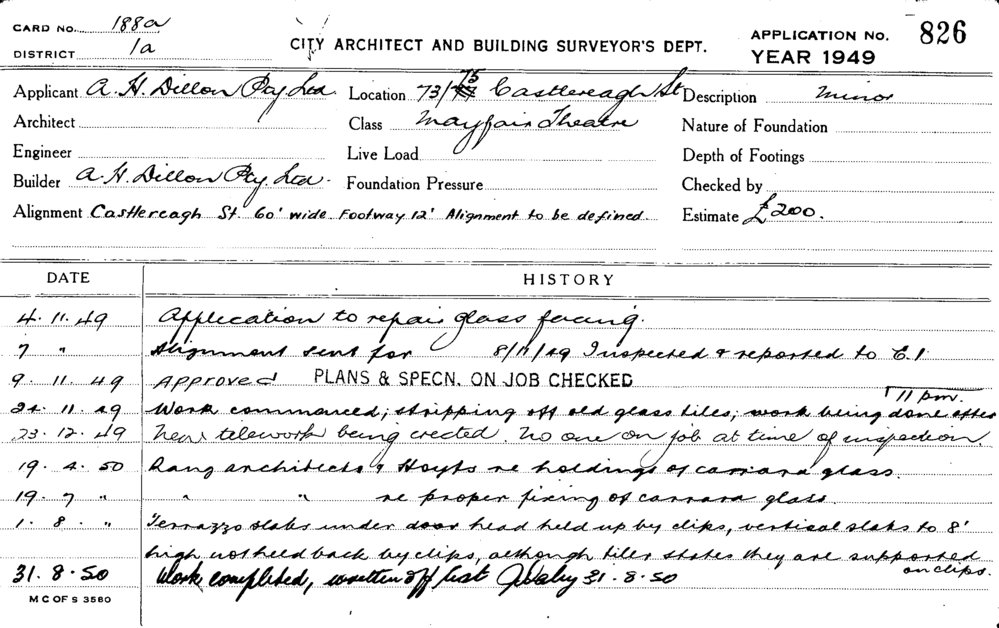 CARD NO. 188a
DISTRICT 1a
CITY ARCHITECT AND BUILDING SURVEYOR'S DEPT.
APPLICATION NO. 826
YEAR 1949
Applicant A. H. Dillon Pty Ltd Location 73/75 Castlereagh St Description Minor
Architect Class Mayfair Theatre Nature of Foundation
Engineer Live Load Depth of Footings
Builder A. H. Dillon Pty. Ltd. Foundation Pressure Checked by
Alignment Castlereagh St. 60' wide Footway 12' Alignment to be defined Estimate £200.
DATE HISTORY
4. 11. 49 Application to repair glass facing.
7 " Alignment sent for 8/11/49 Inspected & reported to E.I.
9. 11. 49 Approved PLANS & SPECN. ON JOB CHECKED
11 pm.
24. 11. 49 Work commenced; stripping off old glass tiles; work being done after
23. 12. 49 New telework being erected. No one on job at time of inspection.
19. 4. 50 Rang architects & Hoyts re holdings of carrara glass.
19. 7 " " " re proper fixing of carrara glass
1. 8. " Terrazzo slabs under door head held up by clips, vertical slabs to 8'
high not held back by clips, although tiler states they are supported
on clips.
31. 8. 50 Work completed, written off list 31. 8. 50
M C OF S 3580